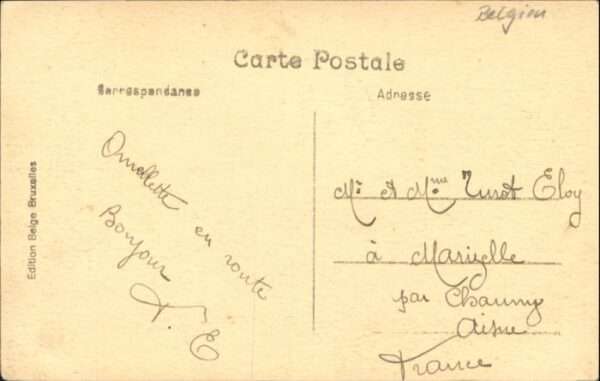 Belgien
Carte Postale
Correspondance
Adresse
Edition Belge Bruxelles
Omelette
en route
Bonjour
T. E
Mr et Mme Turot Eloy
à Marizelle
par Chauny
Aisne
France